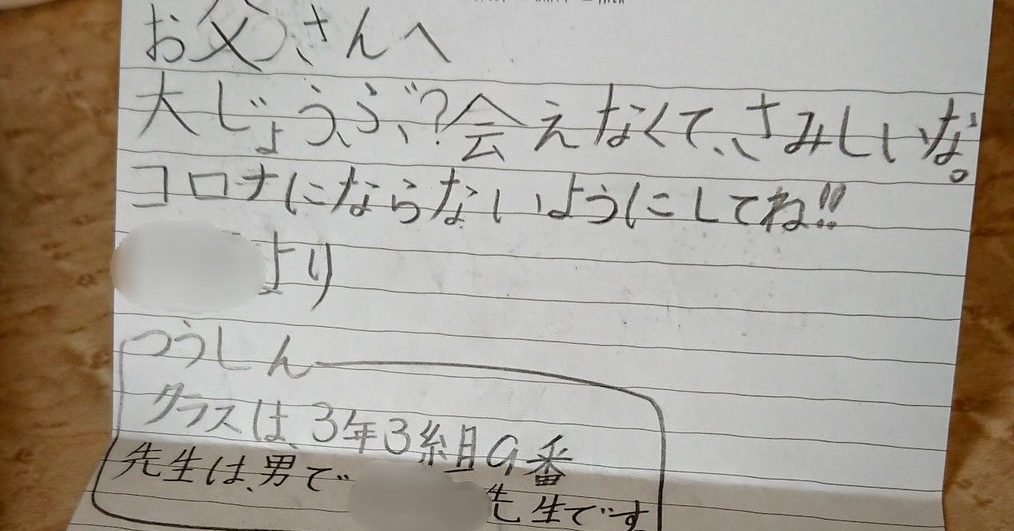 お父さんへ
大じょうぶ?会えなくて、さみしいな。
コロナにならないようにしてね!!
より
つうしん
クラスは、3年3組9番
先生は、男で
先生です